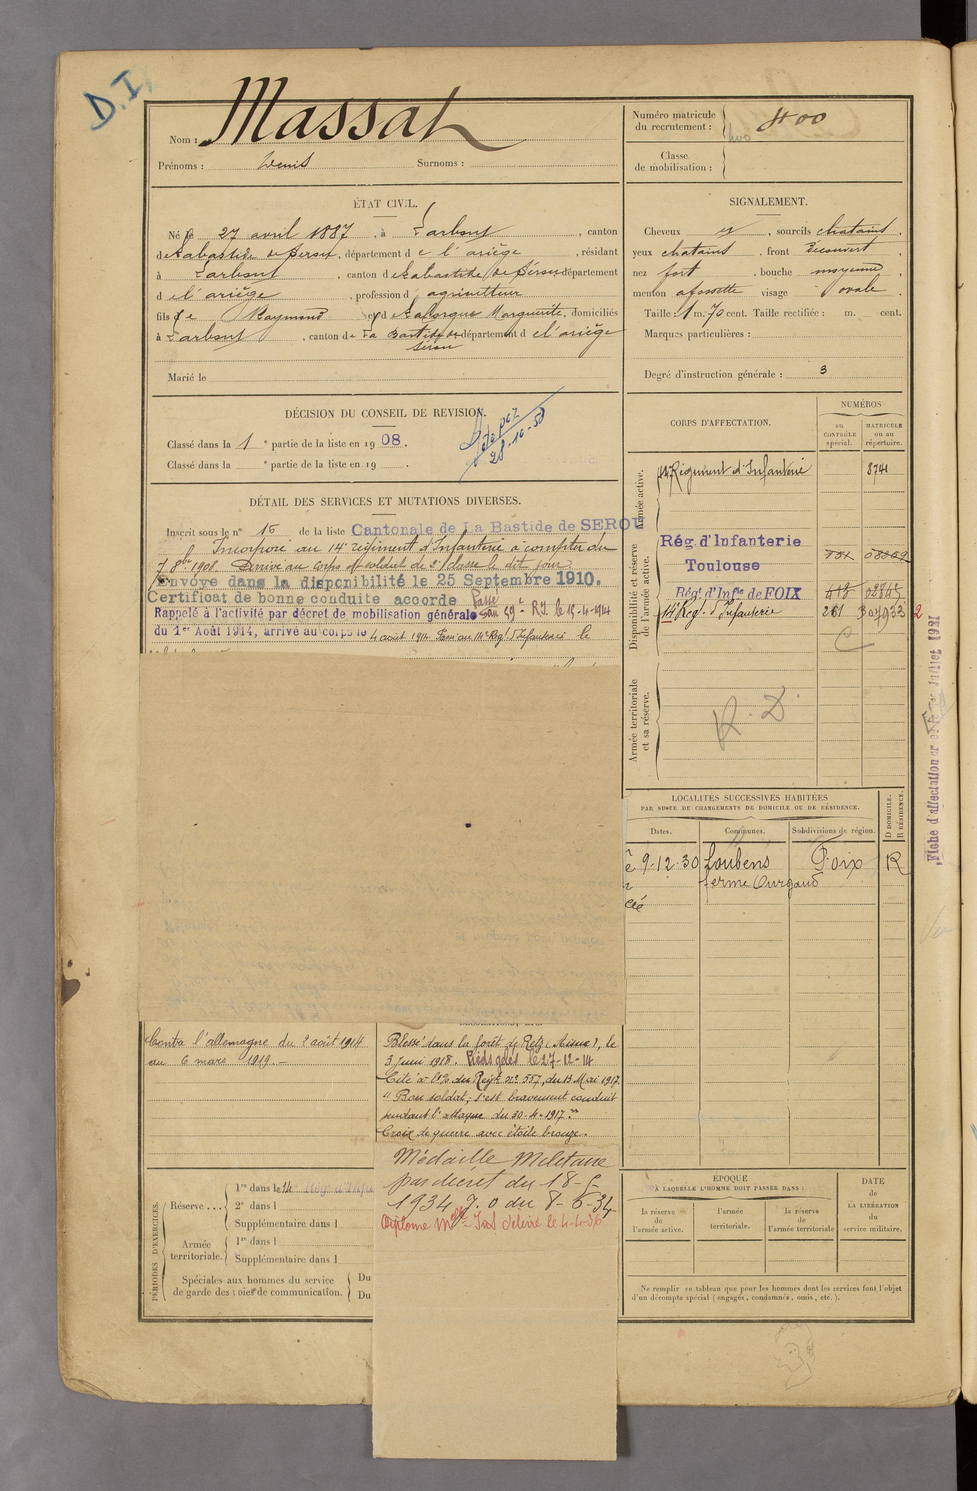 D.I.
Nom : Massat
Prénoms : Denis Surnoms :
Numéro matricule du recrutement : 400
Classe de mobilisation :
ÉTAT CIVIL.
Né le 27 avril 1887, à Larbont, canton
de Labastide de Sérou, département de l'ariège, résidant
à Larbont, canton de Labastide de Sérou département
d el'ariège, profession d'agriculteur
fils de Raymond et d e Laforgue Marguerite, domiciliés
à Larbont, canton de La Bastide de Sérou département d el'ariège
Marié le
SIGNALEMENT.
Cheveux et, sourcils chatains,
yeux chatains, front découvert
nez fort, bouche moyenne,
menton a fossette visage ovale.
Taille : 1 m. 70 cent. Taille rectifiée : m. cent.
Marques particulières :
Degré d'instruction générale : 3
DÉCISION DU CONSEIL DE REVISION.
Classé dans la 1e partie de la liste en 1908.
Classé dans la e partie de la liste en 19 .
28-10-58
DÉTAIL DES SERVICES ET MUTATIONS DIVERSES.
Inscrit sous le n° 15 de la liste Cantonale de La Bastide de SEROU
Incorporé au 14e régiment d'Infanterie à compter du
7 8bre 1908. Arrivé au corps et soldat de 2e classe le dit jour.
Envoyé dans la disponibilité le 25 Septembre 1910.
Certificat de bonne conduite accordé Passé
Rappelé à l'activité par décret de mobilisation générale au 59e R.I. le 15-4-1914
du 1er Août 1914, arrivé au corps le 4 août 1914. Passé au 14e Régt d'Infanterie le
CORPS D'AFFECTATION.
NUMÉROS
au CONTRÔLE spécial.
MATRICULE ou au répertoire.
Armée active.
14e Régiment d'Infanterie 8741
Disponibilité et réserve de l'armée active.
Rég. d'Infanterie
Toulouse
Rég. d'Infie de FOIX
14e Rég. d'Infanterie 261
Armée territoriale et sa réserve.
R.D.
Fiche d'affectation Juillet 1921
LOCALITÉS SUCCESSIVES HABITÉES
PAR SUITE DE CHANGEMENTS DE DOMICILE OU DE RÉSIDENCE.
Dates. Communes. Subdivisions de région. D DOMICILE. R RÉSIDENCE.
9-12-30 Loubens Foix R
ferme Ourgaud
Contre l'allemagne du 2 août 1914
au 6 mars 1919.-
Blessé dans la forêt de Retz (Aisne), le
3 Juin 1918. Pieds gelés le 27-12-14
Cité à l'O% du Régt n° 557, du 13 Mai 1917
"Bon soldat; s'est bravement conduit
pendant l'attaque du 30-4-1917."
Croix de guerre avec étoile bronze.
Médaille Militaire
par décret du 18-5-
1934 J.O du 8-6-34
Diplôme Mlle délivré le 4-4-36
PÉRIODES D'EXERCICES.
Réserve.... 1re dans le 14e Rég. d'Infa
2e dans l
Supplémentaire dans l
Armée territoriale. 1re dans l
Supplémentaire dans l
Spéciales aux hommes du service Du
de garde des voies de communication. Du
ÉPOQUE
À LAQUELLE L'HOMME DOIT PASSER DANS :
la réserve de l'armée active.
l'armée territoriale.
la réserve de l'armée territoriale
DATE de LA LIBÉRATION du service militaire.
Ne remplir ce tableau que pour les hommes dont les services font l'objet
d'un décompte spécial (engagés, condamnés, omis, etc.).